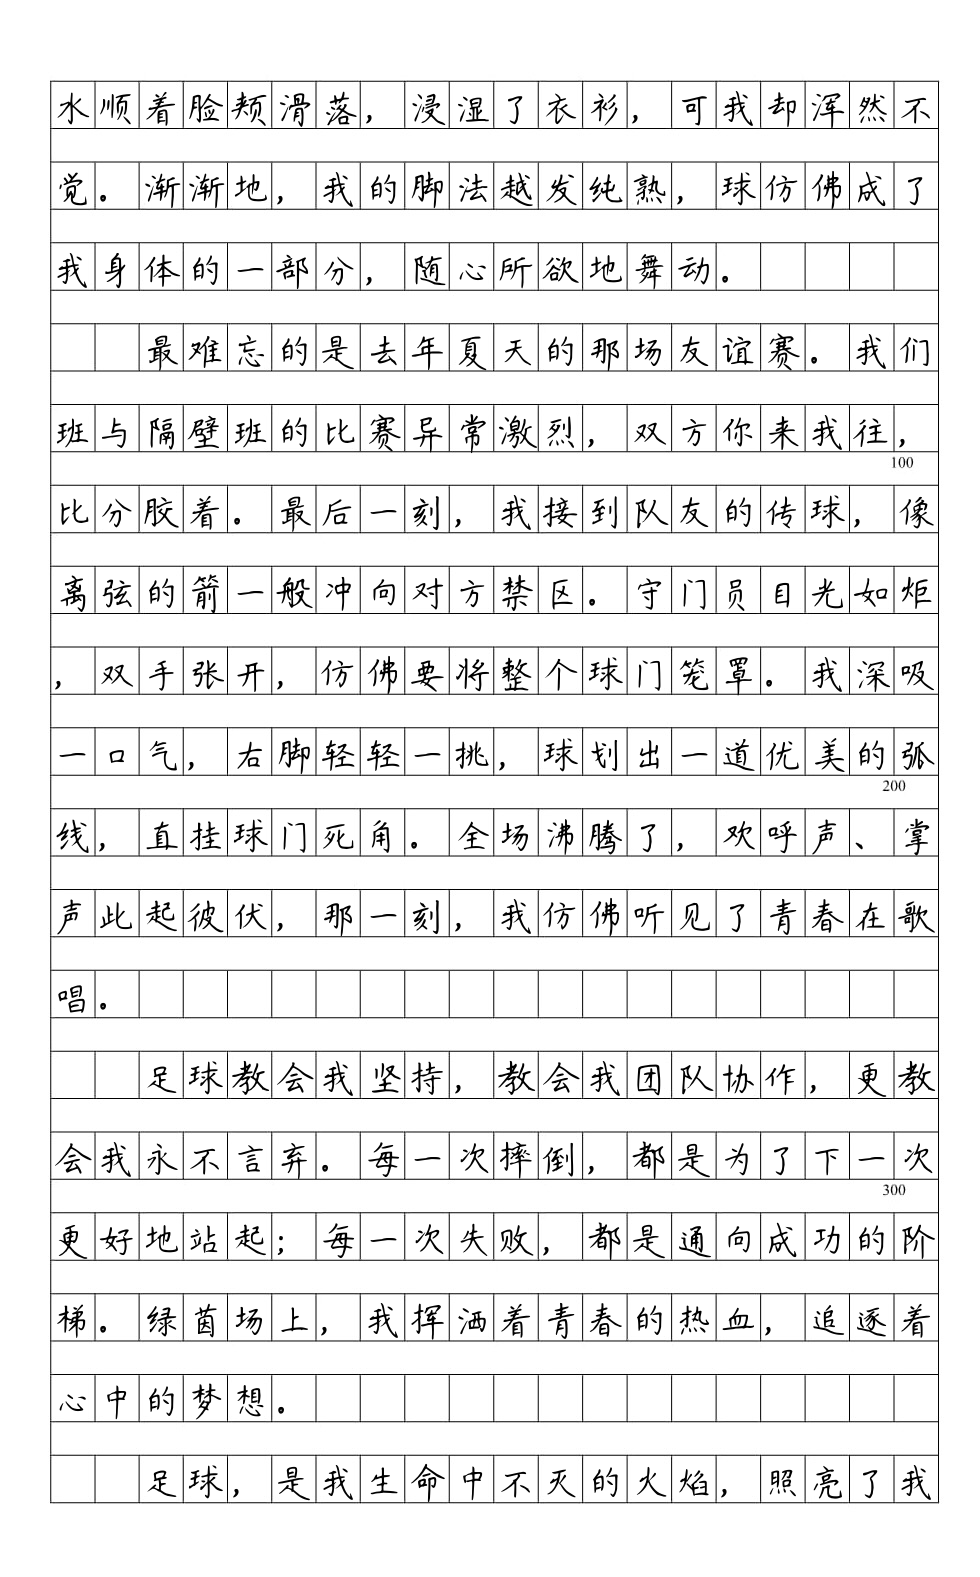 水顺着脸颊滑落，浸湿了衣衫，可我却浑然不
觉。渐渐地，我的脚法越发纯熟，球仿佛成了
我身体的一部分，随心所欲地舞动。
最难忘的是去年夏天的那场友谊赛。我们
班与隔壁班的比赛异常激烈，双方你来我往，
100
比分胶着。最后一刻，我接到队友的传球，像
离弦的箭一般冲向对方禁区。守门员目光如炬
，双手张开，仿佛要将整个球门笼罩。我深吸
一口气，右脚轻轻一挑，球划出一道优美的弧
200
线，直挂球门死角。全场沸腾了，欢呼声、掌
声此起彼伏，那一刻，我仿佛听见了青春在歌
唱。
足球教会我坚持，教会我团队协作，更教
会我永不言弃。每一次摔倒，都是为了下一次
300
更好地站起；每一次失败，都是通向成功的阶
梯。绿茵场上，我挥洒着青春的热血，追逐着
心中的梦想。
足球，是我生命中不灭的火焰，照亮了我